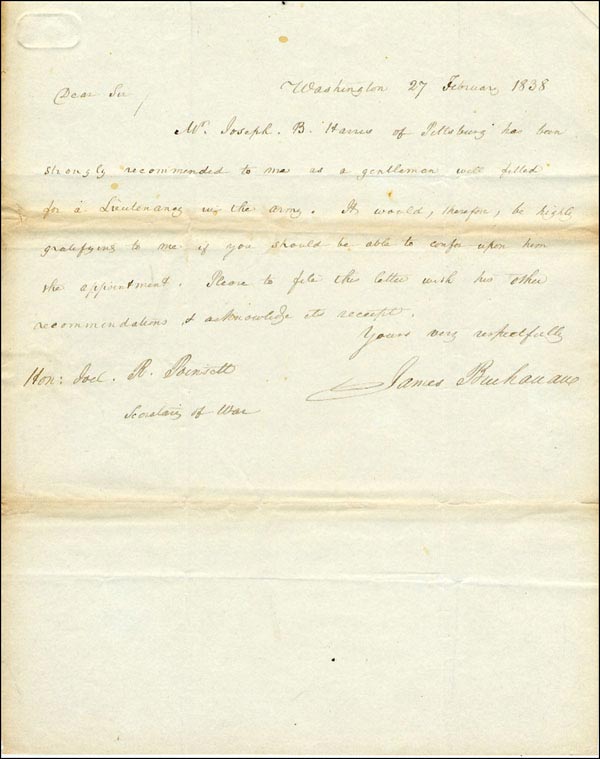 Washington 27 February 1838
Dear Sir,
Mr. Joseph B. Harris of Pittsburg has been
strongly recommended to me as a gentleman well fitted
for a Lieutenancy in the army. It would, therefore, be highly
gratifying to me if you should be able to confer upon him
the appointment. Please to file this letter with his other
recommendations & acknowledge its receipt.
Yours very respectfully
James Buchanan
Hon: Joel. R. Poinsett
Secretary of War